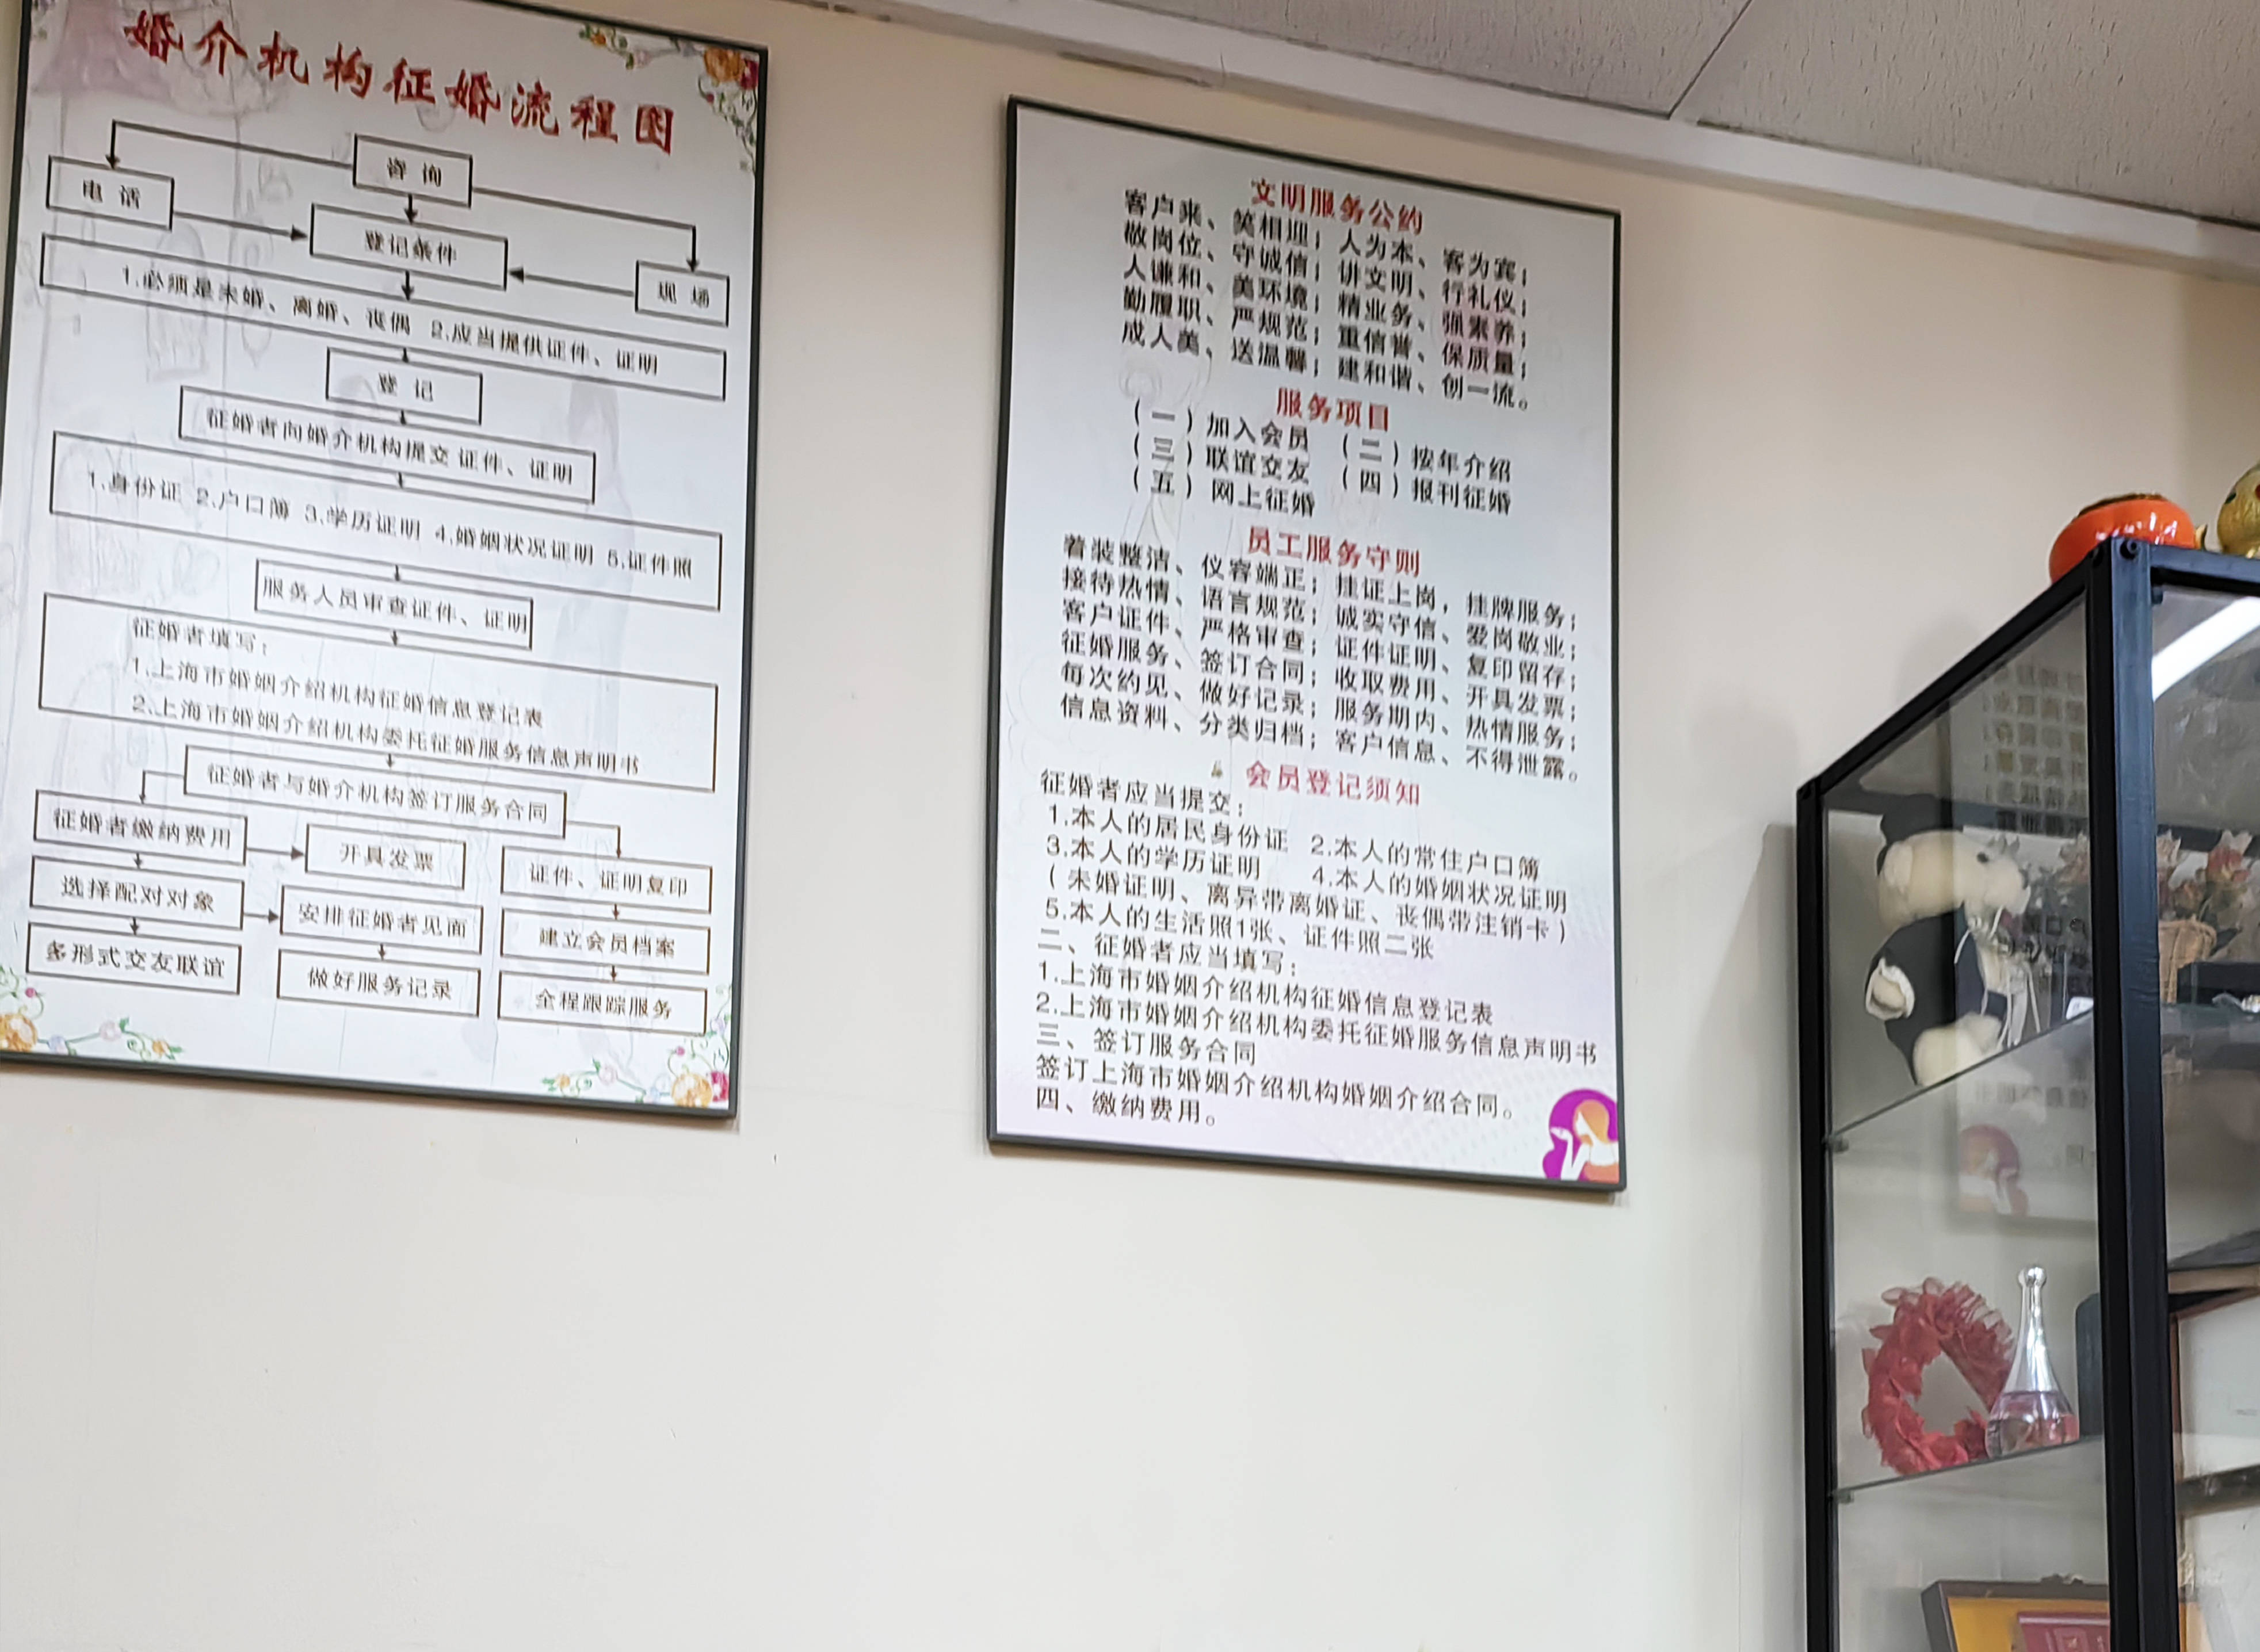 婚介机构征婚流程图
咨询
电话
登记条件
现场
1.必须是未婚、离婚、丧偶 2.应当提供证件、证明
登记
征婚者向婚介机构提交证件、证明
1.身份证 2.户口簿 3.学历证明 4.婚姻状况证明 5.证件照
服务人员审查证件、证明
征婚者填写:
1.上海市婚姻介绍机构征婚信息登记表
2.上海市婚姻介绍机构委托征婚服务信息声明书
征婚者与婚介机构签订服务合同
征婚者缴纳费用
开具发票
证件、证明复印
选择配对对象
安排征婚者见面
建立会员档案
多形式交友联谊
做好服务记录
全程跟踪服务
文明服务公约
客户来、笑相迎；人为本、客为宾；
敬岗位、守诚信；讲文明、行礼仪；
人谦和、美环境；精业务、强素养；
勤履职、严规范；重信誉、保质量；
成人美、送温馨；建和谐、创一流。
服务项目
（一）加入会员 （二）按年介绍
（三）联谊交友 （四）报刊征婚
（五）网上征婚
员工服务守则
着装整洁、仪容端正；挂证上岗，挂牌服务；
接待热情、语言规范；诚实守信、爱岗敬业；
客户证件、严格审查；证件证明、复印留存；
征婚服务、签订合同；收取费用、开具发票；
每次约见、做好记录；服务期内、热情服务；
信息资料、分类归档；客户信息、不得泄露。
会员登记须知
征婚者应当提交：
1.本人的居民身份证 2.本人的常住户口簿
3.本人的学历证明 4.本人的婚姻状况证明
（未婚证明、离异带离婚证、丧偶带注销卡）
5.本人的生活照1张、证件照二张
二、征婚者应当填写：
1.上海市婚姻介绍机构征婚信息登记表
2.上海市婚姻介绍机构委托征婚服务信息声明书
三、签订服务合同
签订上海市婚姻介绍机构婚姻介绍合同。
四、缴纳费用。